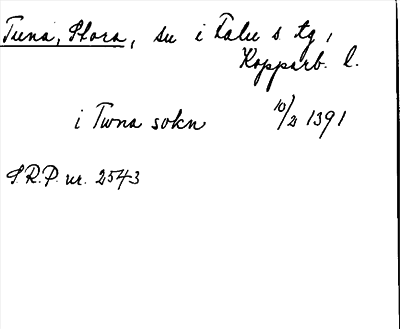 Tuna, Stora, sn i Falu s tg,
Kopparb. l.
i Twna sokn 10/2 1391
S.R.P. nr. 2543